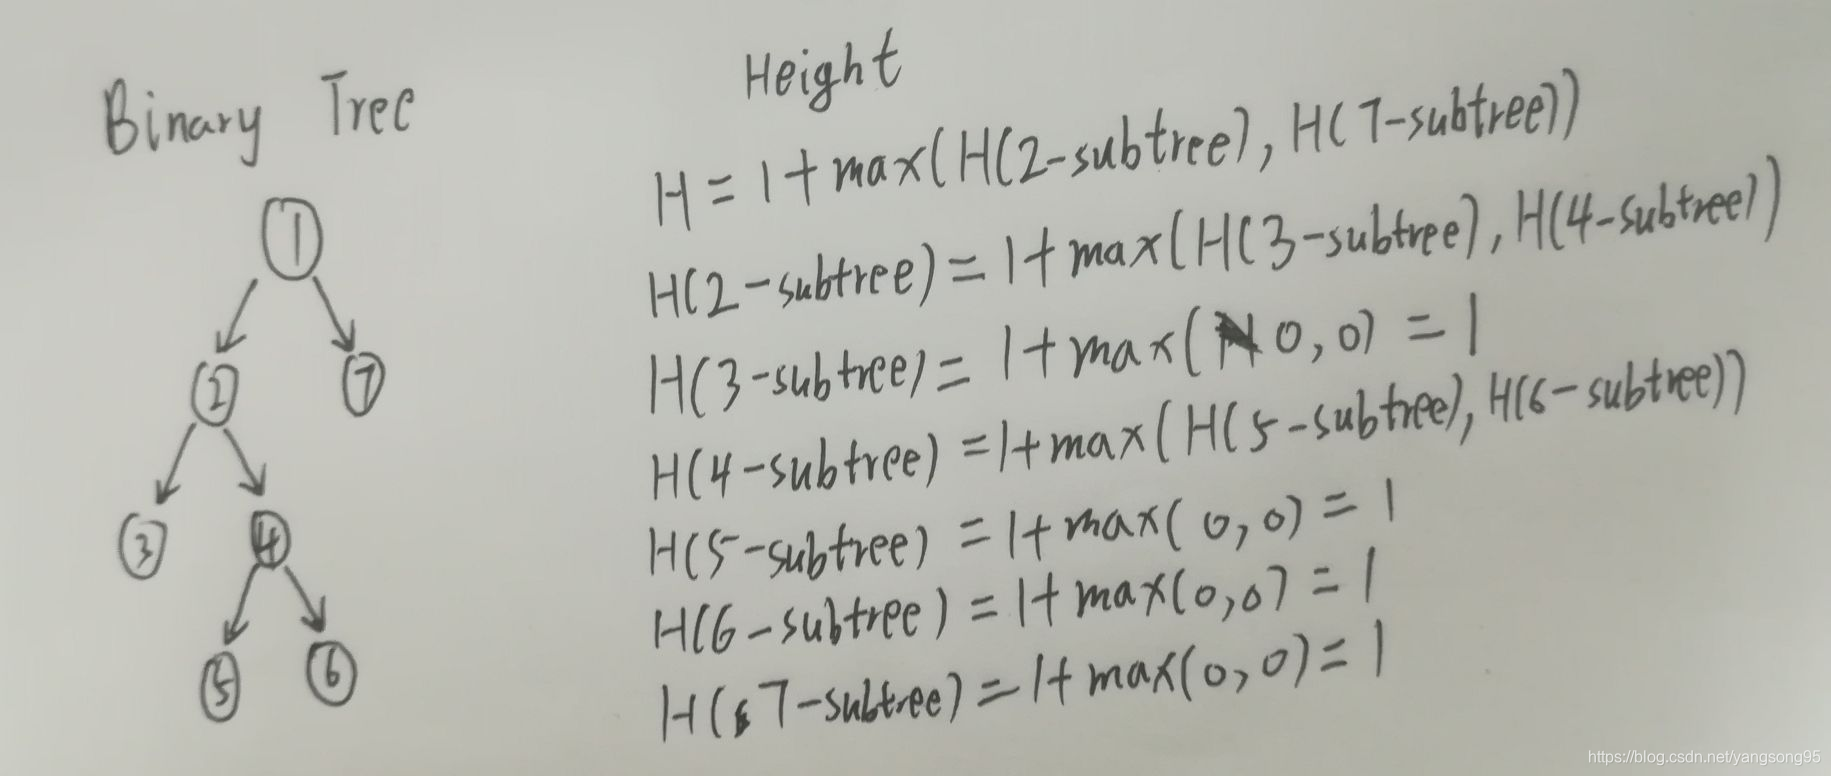 Binary Tree
1
2
7
3
4
5
6
Height
H = 1+max(H(2-subtree), H(7-subtree))
H(2-subtree) = 1+max(H(3-subtree), H(4-subtree))
H(3-subtree) = 1+max(0,0) = 1
H(4-subtree) = 1+max(H(5-subtree), H(6-subtree))
H(5-subtree) = 1+max(0,0) = 1
H(6-subtree) = 1+max(0,0) = 1
H(7-subtree) = 1+max(0,0) = 1
https://blog.csdn.net/yangsong95